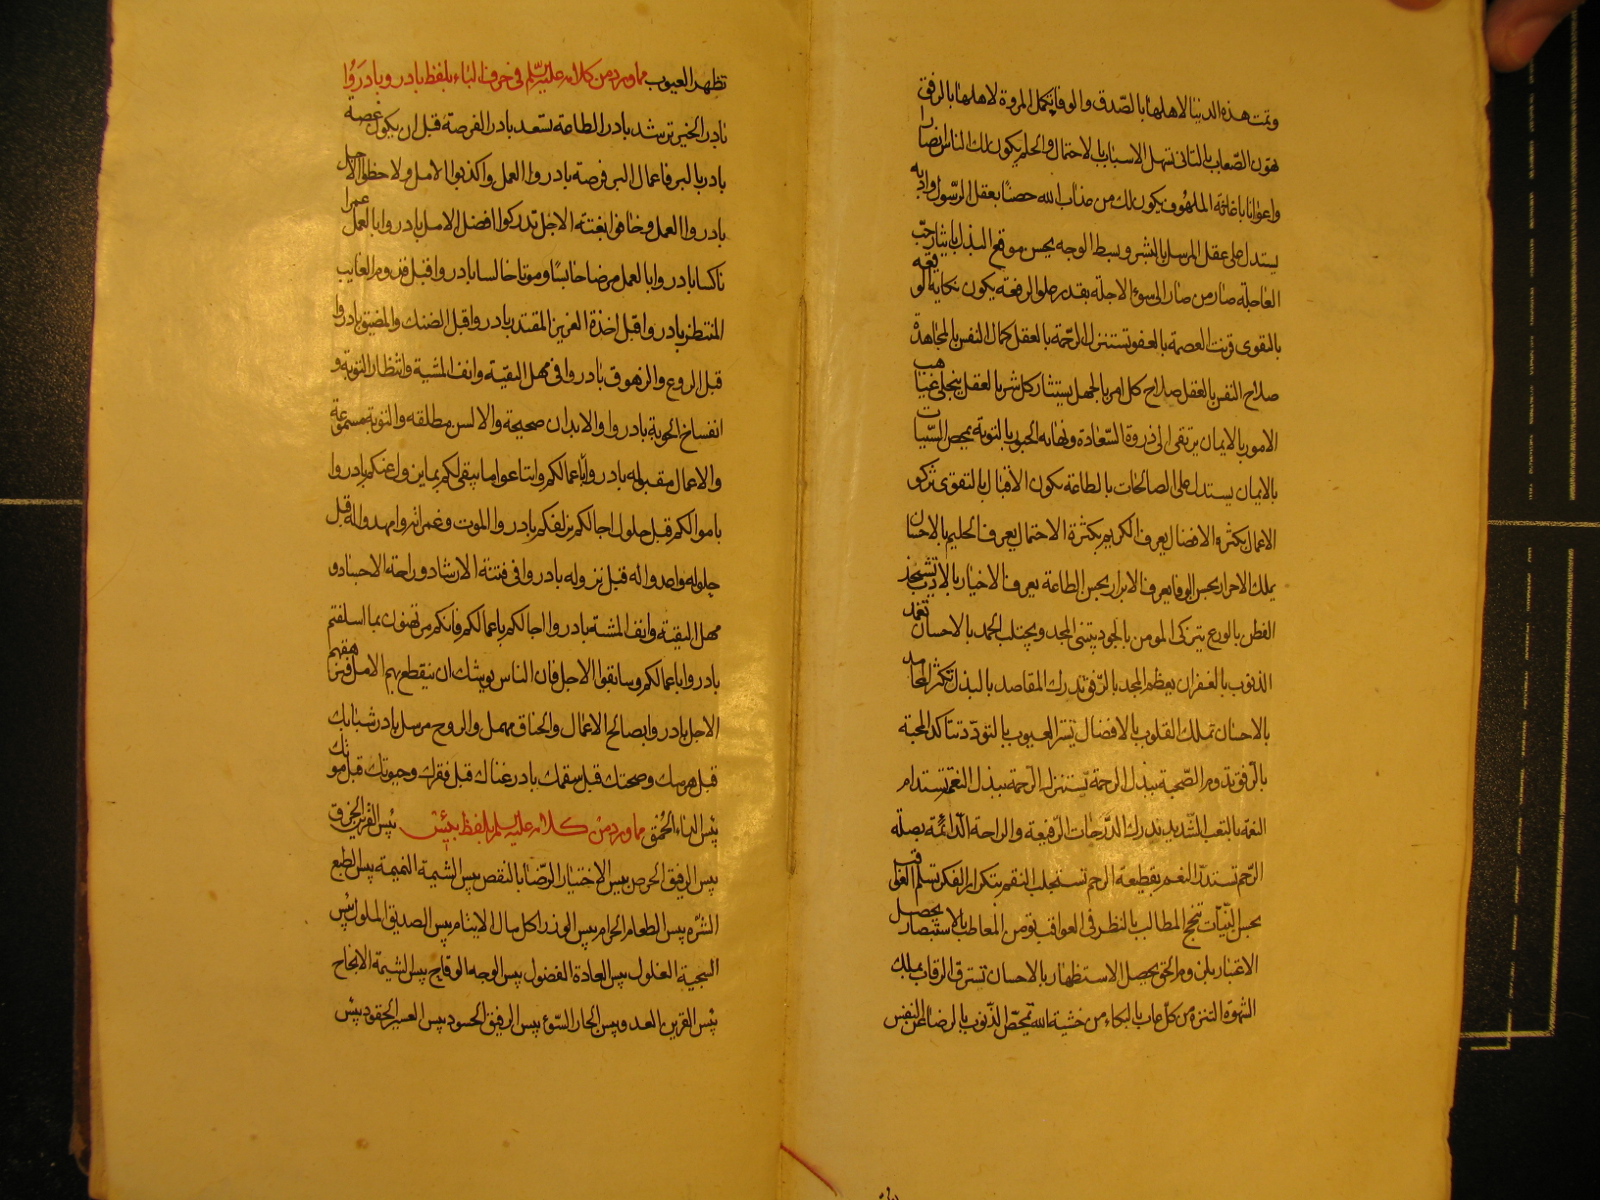 وتمت هذه الدنيا لاهلها بالصّدق والوفا تكمل المروة لاهلها بالرفق
هوّن الصّعاب بالتانى تسهل الاسباب بالاحتمال والحلم يكون لك الناس انصارا
واعوانا باغاثة الملهوف يكون لك من عذاب الله حصنا بعقل الرّسول وادبه
يستدل على عقل المرسل بالبشر وبسط الوجه يحسن موقع البذل بايثار حبّ
العاجلة صار من صار الى سوء الاجلة بقدر علوا لرفعة يكون نكاية الوقعة
بالتقوى قرنت العصمة بالعفو تستنزل الرّحمة بالعقل كمال النفس بالمجاهدة
صلاح النفس بالعقل صلاح كل امر بالجهل يستثار كل شر بالعقل ينجلى غياهب
الامور بالايمان يرتقى الى ذروة السّعادة ونهاية الحبور بالتوبة يمحص السّيات
بالايمان يستدل على الصالحات بالطاعة يكون الاقبال بالتقوى تزكو
الاعمال بكثرة الافضال يعرف الكريم بكثرة الاحتمال يعرف الحليم بالاحسان
يملك الاحرار بحسن الوفا يعرف الابرار بحسن الطاعة يعرف الاخيار بالادب تشحذ
الفطن بالورع يتزكى المومن بالجود يبتنى المجد ويجتلب الحمد بالاحسان تغمد
الذنوب بالغفران يعظم المجد بالرّفق تدرك المقاصد بالبذل تكثر المحامد
بالاحسان تملك القلوب بالافضال تستر العيوب بالتودّد تتاكد المحبة
بالرّفق تدوم الصّحبة ببذل الرحمة تستنزل الرحمة ببذل النعمة تستدام
النعمة بالتعب الشّديد تدرك الدّرجات الرّفيعة والراحة الدّائمة بصلة
الرّحم تستدرّ النعم بقطيعة الرحم تستجلب النقم بتكرار الفكر تسلم العواقب
بحسن النّيّات تنجح المطالب بالنظر فى العواقب تومن المعاطب بالاستبصار يحصل
الاعتبار بلزوم الحق يحصل الاستظهار بالاحسان تسترق الرقاب بملك
الشهوة التنزه من كل عاب بالبكاء من خشية الله تمحّص الذّنوب بالرضا عن النفس
تظهر العيوب مما ورد من كلامه عليه السّلم فى حرف الباء بلفظ بادر وبادروا
بادر الخير ترشد بادر الطاعة تسعد بادر الفرصة قبل ان يكون غصة
بادر بالبر فاعمال البر فرصة بادروا العمل واكذبوا الامل ولاحظوا الاجل
بادروا العمل وخافوا بغتة الاجل تدركوا افضل الامل بادروا بالعمل عمرا
ناكسا بادروا بالعمل مرضا حابسًا وموتا خالسا بادروا قبل قدوم الغايب
المنتظر بادروا قبل اخذة العزيز المقتدر بادروا قبل الضنك والمضيق بادروا
قبل الروع والزهوق بادروا فى مهل البقية وانف المشية وانتظار التوبة و
انفساخ الحوبة بادروا والابدان صحيحة والالسن مطلقة والتوبة مسموعة
والاعمال مقبولة بادروا باعمالكم وابتاعوا ما يبقى لكم بما يزول عنكم بادروا
باموالكم قبل حلول اجالكم يزلفكم بادروا الموت وغمراته وامهدوا له قبل
حلوله واعدوا له قبل نزوله بادروا فى فتنة الارشاد وراحة الاجساد و
مهل البقية وانف المشية بادروا اجالكم باعمالكم فانكم مرتهنون بما اسلفتم
بادروا باعمالكم وسابقوا الاجل فان الناس يوشك ان ينقطع بهم الامل فيرهقهم
الاجل بادروا بصالح الاعمال والخناق مهمل والروح مرسل بادر شبابك
قبل هرمك وصحتك قبل سقمك بادر غناك قبل فقرك وحيوتك قبل موتك
بيس الداء الحمق مما ورد من كلامه عليه السلم بلفظ بئس بئس القرين الخرق
بيس الرفيق الحرص بيس الاختيار الرّضا بالنقص بيس الشيمة النميمة بيس الطبع
الشّره بيس الطعام الحرام بيس الوزر اكل مال الايتام بيس الصديق الملول بيس
السجية الغلول بيس العادة الفضول بيس الوجه الوقاح بيس لشيمة الالحاح
بيس القرين العدو بيس الجار السّوء بيس الرفيق الحسود بيس العسير الحقود بيس